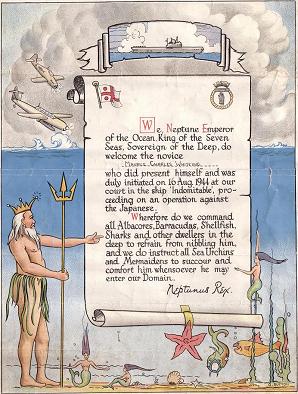 We, Neptune Emperor
of the Ocean, King of the Seven
Seas, Sovereign of the Deep, do
welcome the novice
Charles
who did present himself and was
duly initiated on 16 Aug. 1944 at our
court in the ship 'Indomitable', pro-
ceeding on an operation against
the Japanese.
Wherefore do we command
all Albacores, Barracudas, Shellfish,
Sharks and other dwellers in the
deep to refrain from nibbling him,
and we do instruct all Sea Urchins
and Mermaidens to succour and
comfort him whensoever he may
enter our Domain.
Neptunus Rex.